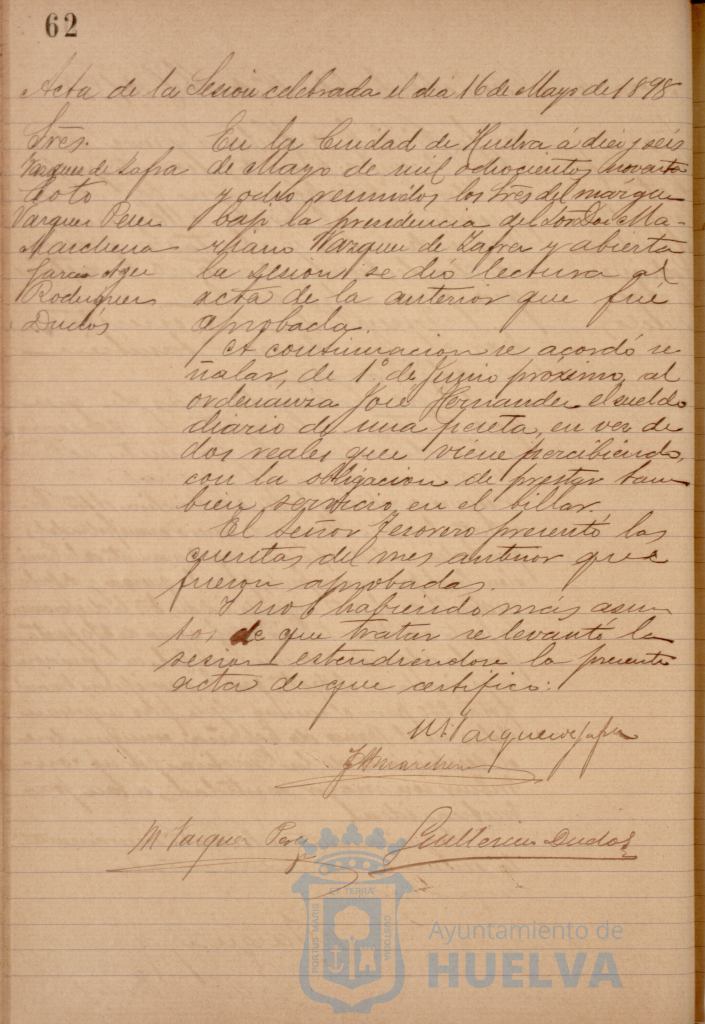 62
Acta de la Sesión celebrada el dia 16 de Mayo de 1898
Sres.
Vazquez de Zafra
Soto
Vazquez Perez
Marchena
Garcia
Rodriguez
Duclós
En la Ciudad de Huelva á diez y seis
de Mayo de mil ochocientos noventa
y ocho reunidos los sres del márgen
bajo la presidencia del Sor Don Ma-
riano Vazquez de Zafra y abierta
la sesion se dió lectura al
acta de la anterior que fué
aprobada.
A continuacion se acordó se
ñalar, de 1º de Junio próximo, al
ordenanza José Hernandez el sueldo
diario de una peseta, en vez de
dos reales que viene percibiendo,
con la obligacion de prestar tam
bien servicio en el billar.
El Señor Tesorero presentó las
cuentas del mes anterior que
fueron aprobadas.
Y no habiendo más asun
tos de que tratar se levantó la
sesion estendiéndose la presente
acta de que certifico:
M. Vazquez de Zafra
Marchena
M. Vazquez Perez
Guillermo Duclós
ET TERRÆ
PORTUS MARIS
CUSTODIA
Ayuntamiento de
HUELVA